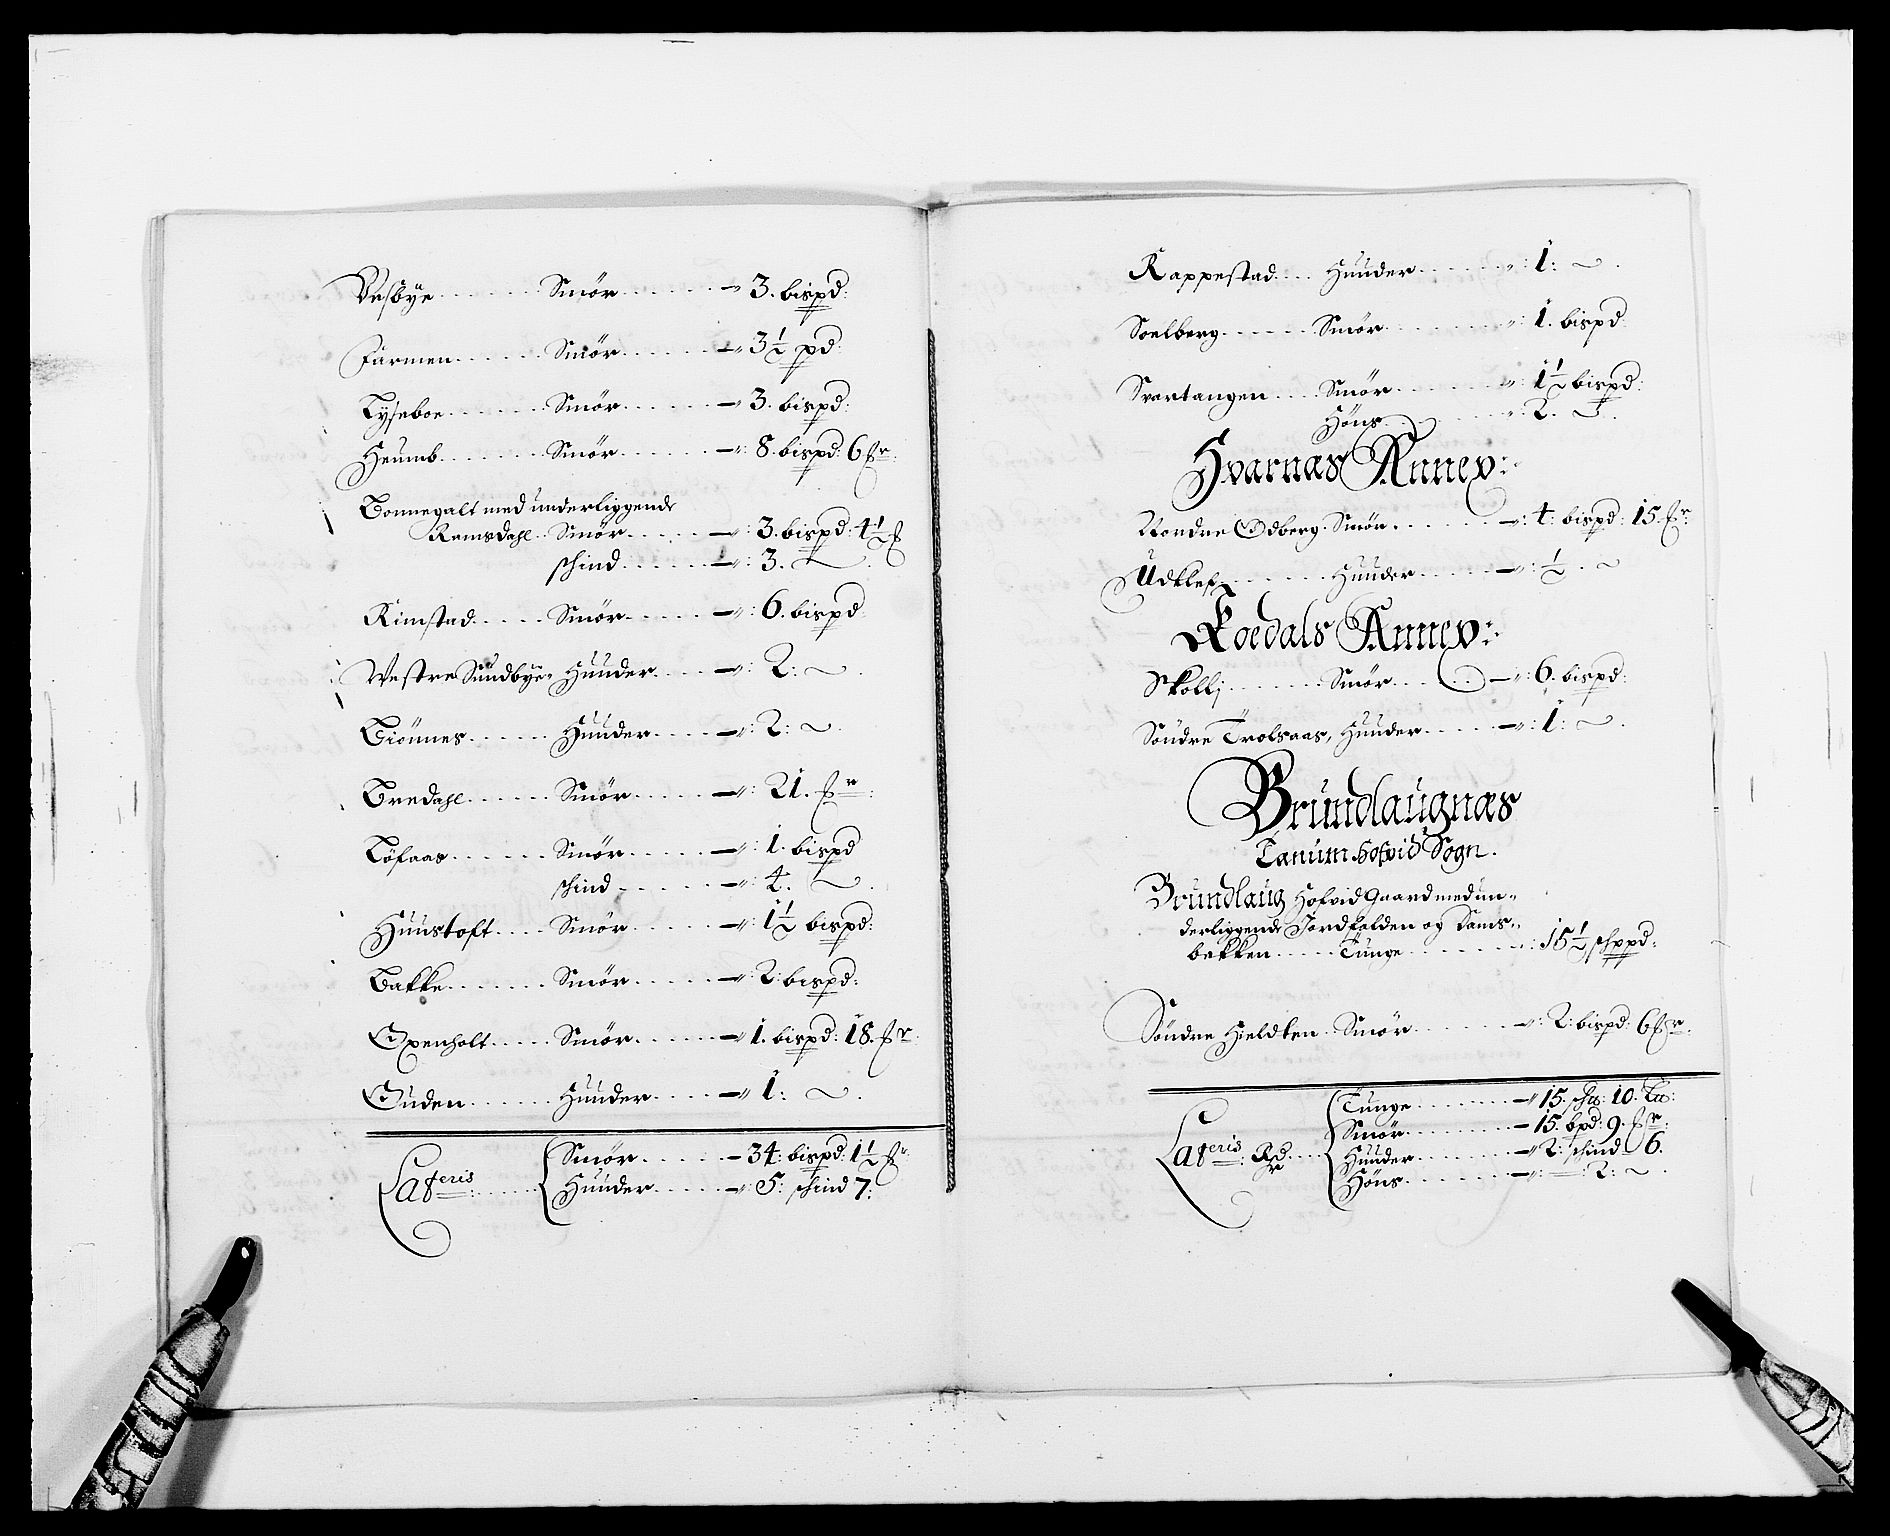 Vesbye . . . . . . Smör . . . . . . – 3. bispd:
Farmen . . . . . . Smör . . . . . . – 3½ pd:
Tyseboe . . . . . . Smör . . . . . . – 3. bispd:
Heumb . . . . . . Smör . . . . . . – 8. bispd: 6
Bonnegalt med underliggende
Ramsdahl . . Smör . . . . . – 3. bispd: 4½
schind . . . . . . – 3. ~
Rimstad . . . . . Smör . . . . . – 6. bispd
Westre Sundbye, Huuder . . . . – 2: ~
Biönnes . . . . . Huuder . . . . – 2: ~
Bredahl . . . . . Smör . . . . . – 21.
Töfaas . . . . . . Smör . . . . . – 1. bispd
schind . . . . . – 4. ~
Huustoft . . . . Smör . . . . . – 1½ bispd:
Bakke . . . . . . Smör . . . . . – 2: bispd:
Oxenholt . . . . . Smör . . . . . – 1. bispd: 18.
Guden . . . . . . Huuder . . . . – 1: ~
Lateris . . . . . Smör . . . . . – 34: bispd: 1½
Huuder . . . . . – 5: schind 7:
Kappestad . . . . Huuder . . . . . . : 1: ~
Soelberg . . . . . Smör . . . . . . : 1. bispd
Svartangen . . . . Smör . . . . . . : 1½ bispd:
Höns . . . . . . : 2. ~
Hvarnæs Annex:
Nordre Odberg. Smör . . . . . . – 4: bispd: 15.
Udklef . . . . . . Huuder . . . . . – ½. ~
Koedals Annex:
Skolli . . . . . . Smör . . . . . – 6. bispd:
Söndre Trolsaas, Huuder . . . . . – 1: ~
Brundlaugnæs
Tanum Hofvid Sogn.
Brundlaug Hofvid Gaard med un-
derliggende Jordfalden og Dams-
bakken . . . . . Tunge . . . . . . : 15½ schppd:
Söndre Hieldten. Smör . . . . . . – 2: bispd: 6
Lateris: . . . Tunge . . . . . . – 15. 10.
Smör . . . . . . – 15. bpd: 9.
Huuder . . . . . . – 2: schind 6.
Höns . . . . . . – 2: ~